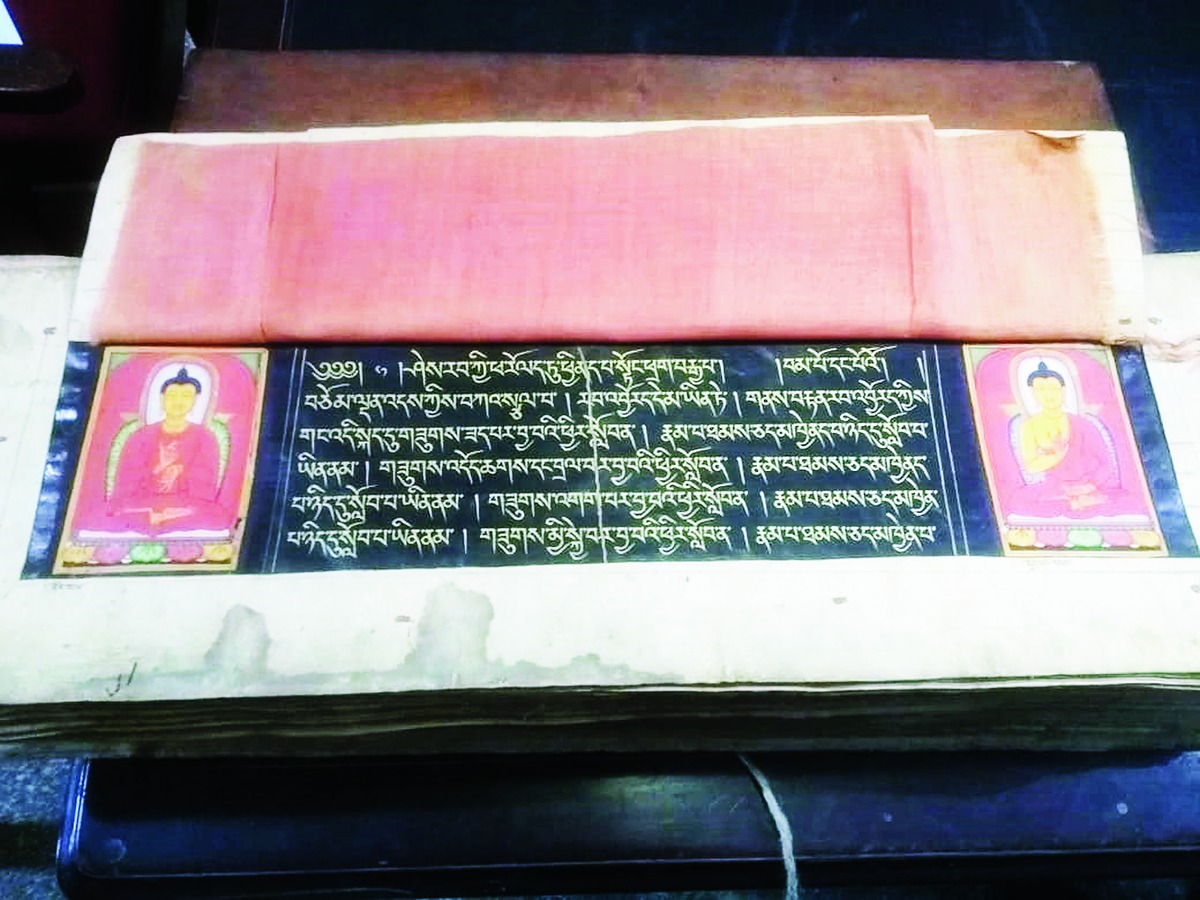 ༄༅༅། ༈ །ཤེས་རབ་ཀྱི་ཕ་རོལ་དུ་ཕྱིནད་པ་སྟོང་ཕྲག་བརྒྱ་པ། །བམ་པོ་དང་པོའོ། །
བཅོམ་ལྡན་འདས་ཀྱིས་བཀའ་སྩལ་པ་ །རབ་འབྱོར་དེ་དེ་མ་ཡིན་ཏེ །གནས་བརྟན་རབ་འབྱོར་ཀྱིས
གང་འདི་སྐད་དུ་གཟུགས་ཟད་པར་བྱ་བའི་ཕྱིར་སློབ་ན །རྣམ་པ་ཐམས་ཅད་མཁྱེནད་པ་ཉིད་དུ་སློབ་པ་
ཡིན་ནམ་ །གཟུགས་འདོད་ཆགས་དང་བྲལ་བར་བྱ་བའི་ཕྱིར་སློབ་ན །རྣམ་པ་ཐམས་ཅད་མཁྱེནད
པ་ཉིད་དུ་སློབ་པ་ཡིན་ནམ་ །གཟུགས་འགག་པར་བྱ་བའི་ཕྱིར་སློབ་ན །རྣམ་པ་ཐམས་ཅད་མཁྱེན
པ་ཉིད་དུ་སློབ་པ་ཡིན་ནམ་ །གཟུགས་མྱི་སྐྱེ་བར་བྱ་བའི་ཕྱིར་སློབ་ན །རྣམ་པ་ཐམས་ཅད་མཁྱེན་པ་